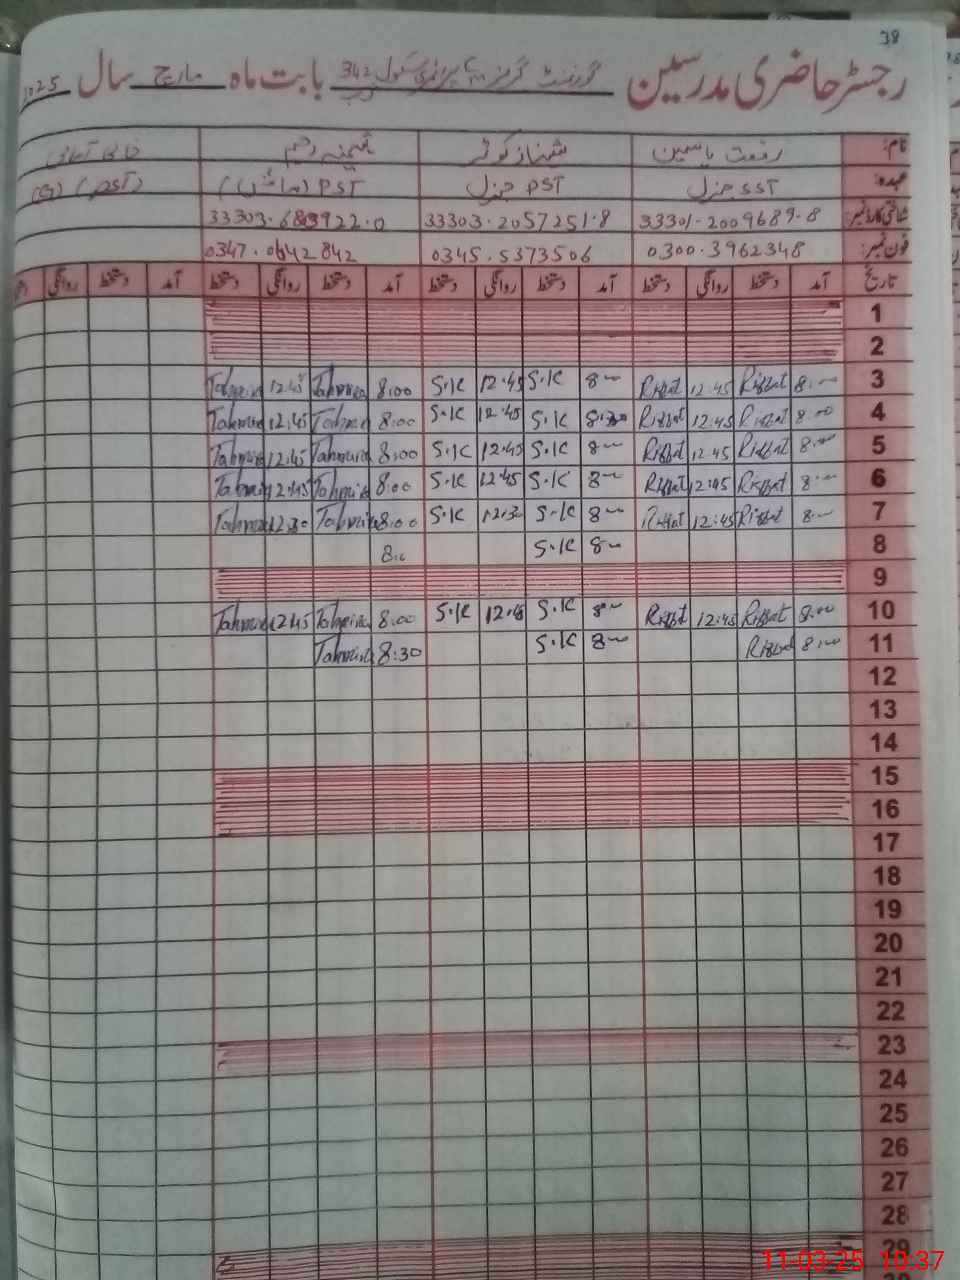 38
رجسٹر حاضری مدرسین گورنمنٹ گرلز پرائمری سکول 342 بابت ماہ مارچ سال 2025
نام: رفعت یاسمین شہناز کوثر تہمینہ رحیم خالی آسامی
عہدہ: SST جنرل PST جنرل PST (سائنس) (PST)
شناختی کارڈ نمبر 33301-2009689-8 33303-2057251-8 33303-6803922-0
فون نمبر: 0300-3962348 0345-5373506 0347-0642842
تاریخ آمد دستخط روانگی دستخط آمد دستخط روانگی دستخط آمد دستخط روانگی دستخط آمد دستخط روانگی
1
2
3 8:00 Riffat 12:45 Riffat 8:00 S.K 12:45 S.K 8:00 Tahmina 12:45 Tahmina
4 8:00 Riffat 12:45 Riffat 8:00 S.K 12:45 S.K 8:00 Tahmina 12:45 Tahmina
5 8:00 Riffat 12:45 Riffat 8:00 S.K 12:45 S.K 8:00 Tahmina 12:45 Tahmina
6 8:00 Riffat 12:45 Riffat 8:00 S.K 12:45 S.K 8:00 Tahmina 12:45 Tahmina
7 8:00 Riffat 12:45 Riffat 8:00 S.K 12:30 S.K 8:00 Tahmina 12:30 Tahmina
8 8:00 S.K 8:0
9
10 8:00 Riffat 12:45 Riffat 8:00 S.K 12:45 S.K 8:00 Tahmina 12:45 Tahmina
11 8:00 Riffat 8:00 S.K 8:30 Tahmina
12
13
14
15
16
17
18
19
20
21
22
23
24
25
26
27
28
29
11-03-25 10:37